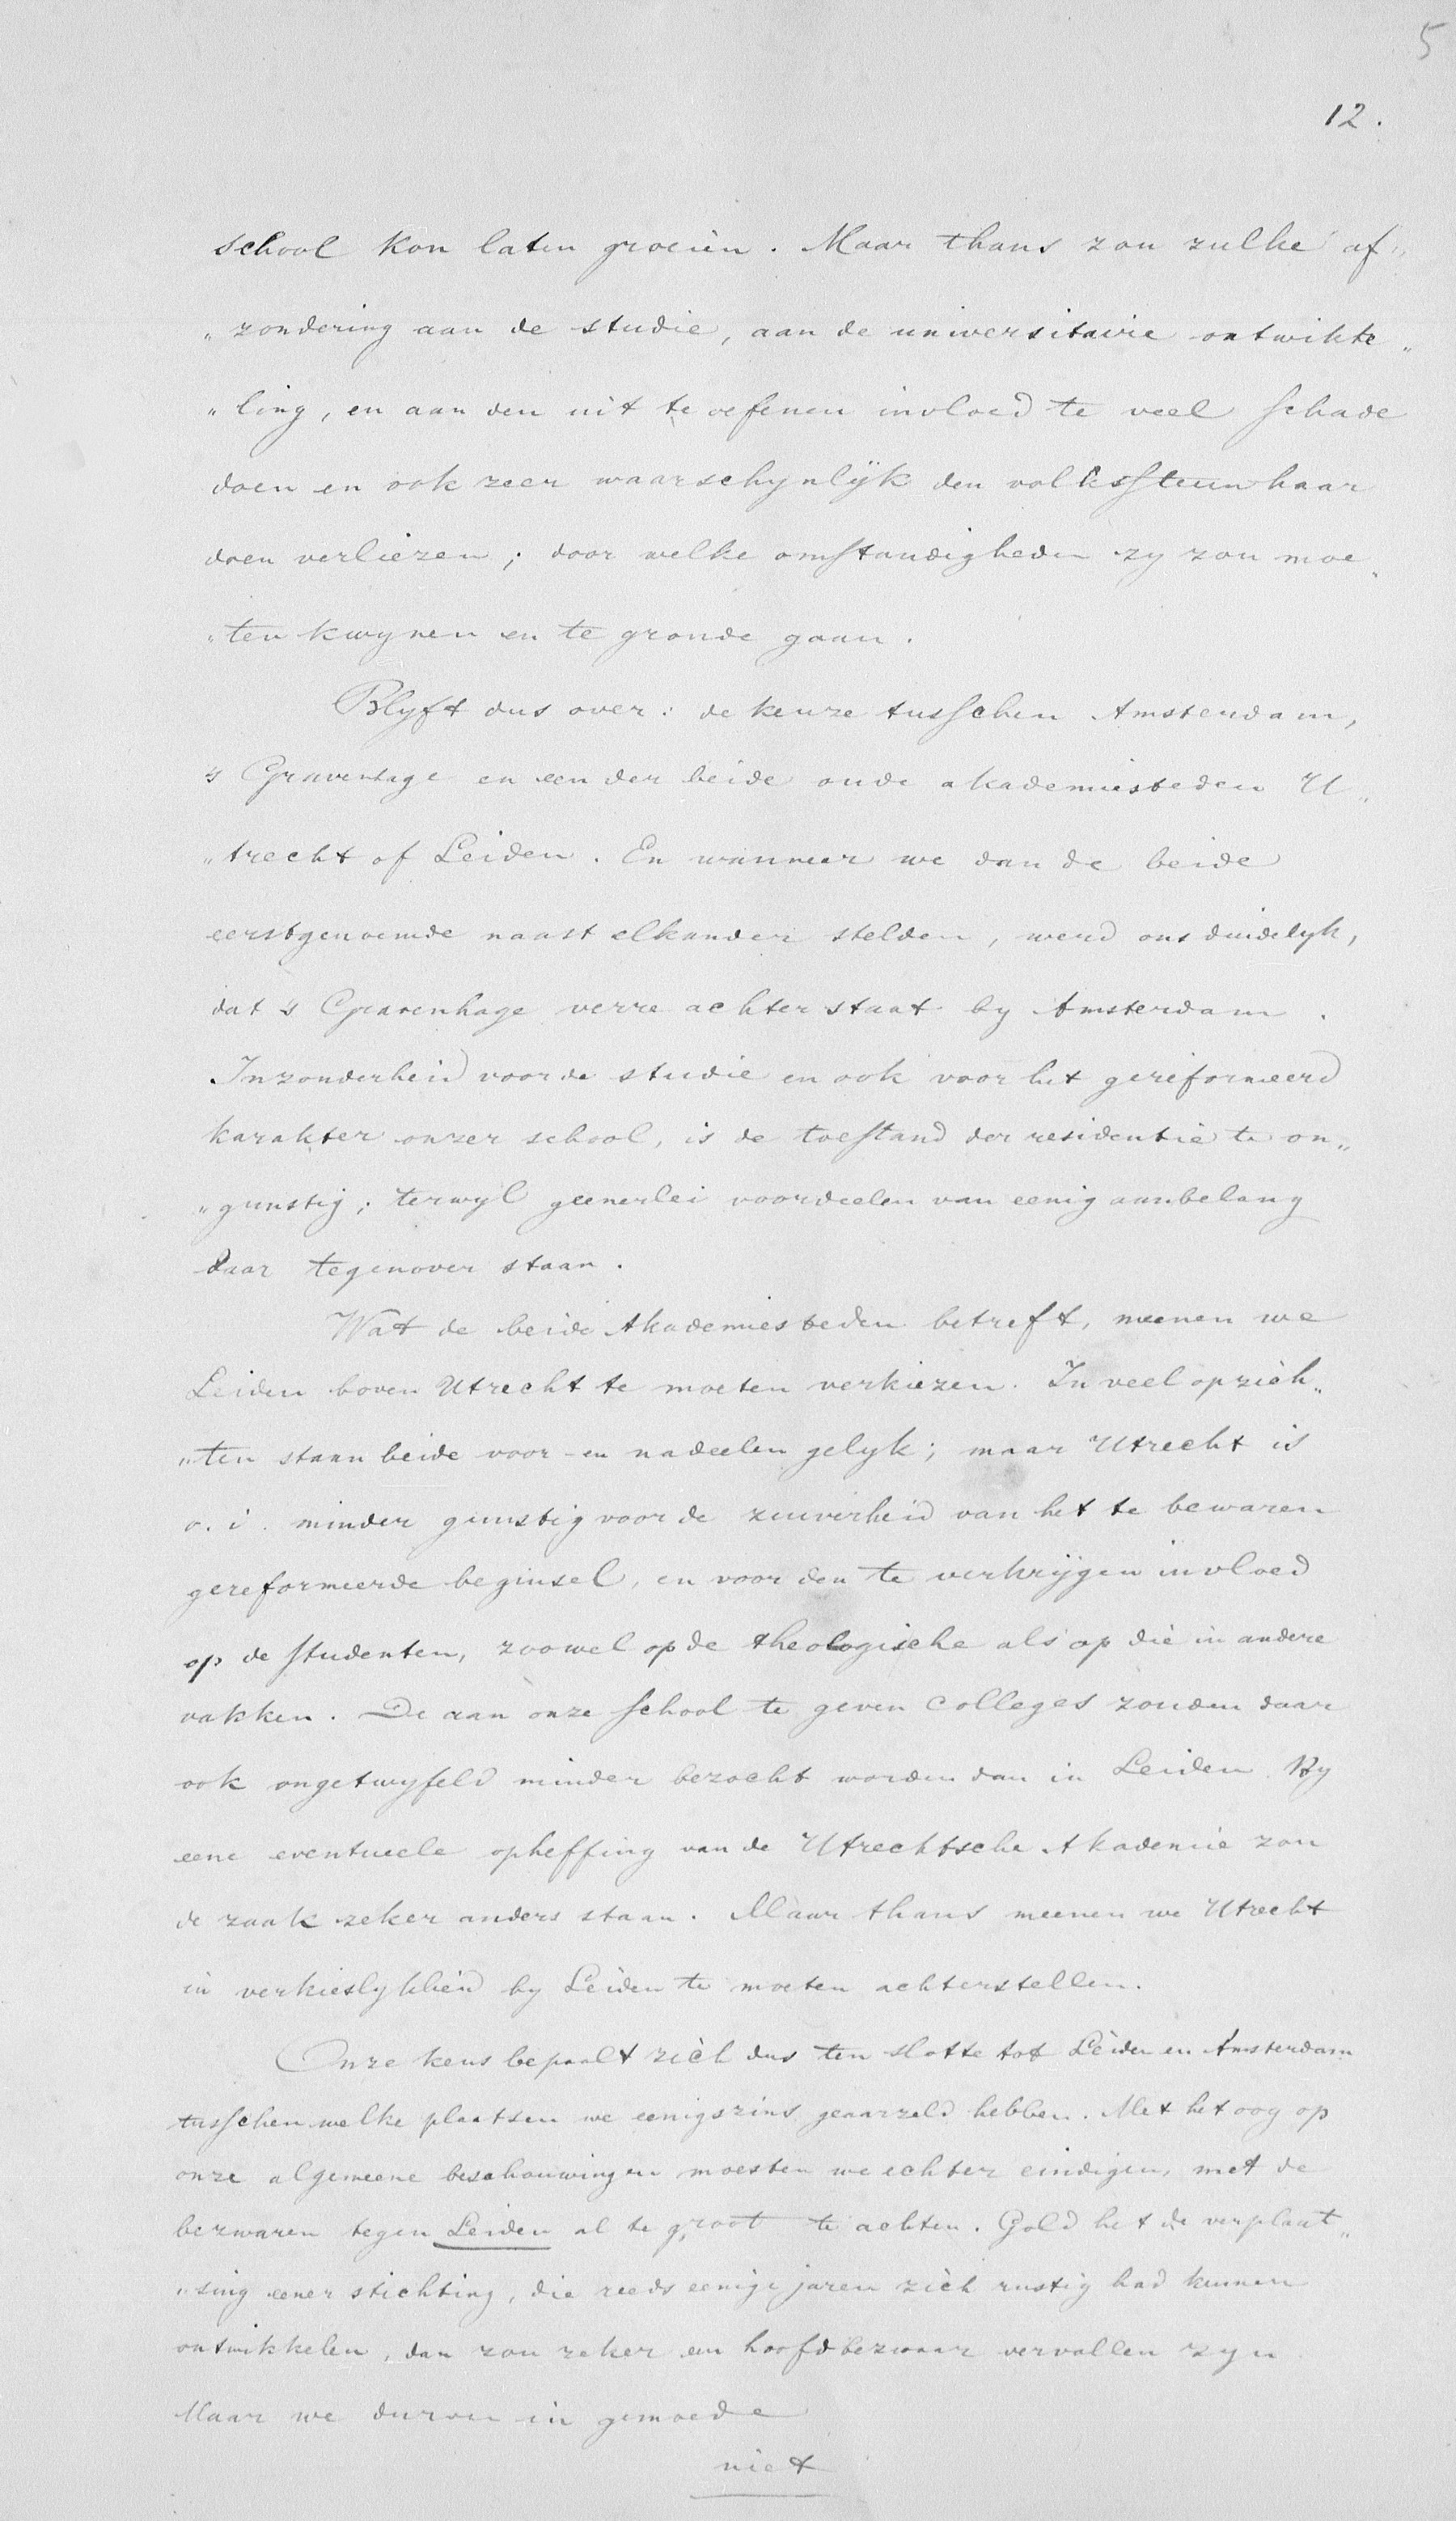 5
12.
school kon laten groeien. Maar thans zou zulke af„
„zondering aan de studie, aan de universitaire ontwikke„
„ling, en aan den uit te oefenen invloed te veel schade
doen en ook zeer waarschynlijk den volkssteun haar
doen verliezen; door welke omstandigheden zy zou moe„
„ten kwynen en te gronde gaan.
Blyft dus over: de keuze tusschen Amsterdam,
's Gravenhage en een der beide oude akademiesteden U„
„trecht of Leiden. En wanneer we dan de beide
eerstgenoemde naast elkander stelden, werd ons duidelyk,
dat 's Gravenhage verre achter staat by Amsterdam.
Inzonderheid voor de studie en ook voor het gereformeerd
karakter onzer school, is de toestand der residentie te on„
„gunstig; terwyl geenerlei voordeelen van eenig aanbelang
daar tegenover staan.
Wat de beide Akademiesteden betreft, meenen we
Leiden boven Utrecht te moeten verkiezen. In veel opzich„
„ten staan beide voor- en nadeelen gelyk; maar Utrecht is
o. i. minder gunstig voor de zuiverheid van het te bewaren
gereformeerde beginsel, en voor den te verkrijgen invloed
op de studenten, zoowel op de theologische als op die in andere
vakken. De aan onze school te geven colleges zouden daar
ook ongetwyfeld minder bezocht worden dan in Leiden. By
eene eventueele opheffing van de Utrechtsche Akademie zou
de zaak zeker anders staan. Maar thans meenen we Utrecht
in verkieslykheid by Leiden te moeten achterstellen.
Onze keus bepaalt zich dus ten slotte tot Leiden en Amsterdam
tusschen welke plaatsen we eenigszins geaarzeld hebben. Met het oog op
onze algemeene beschouwingen moesten we echter eindigen, met de
bezwaren tegen Leiden al te groot te achten. Gold het de verplaat„
„sing eener stichting, die reeds eenige jaren zich rustig had kunnen
ontwikkelen, dan zou zeker een hoofdbezwaar vervallen zyn
Maar we durven in gemoede
niet